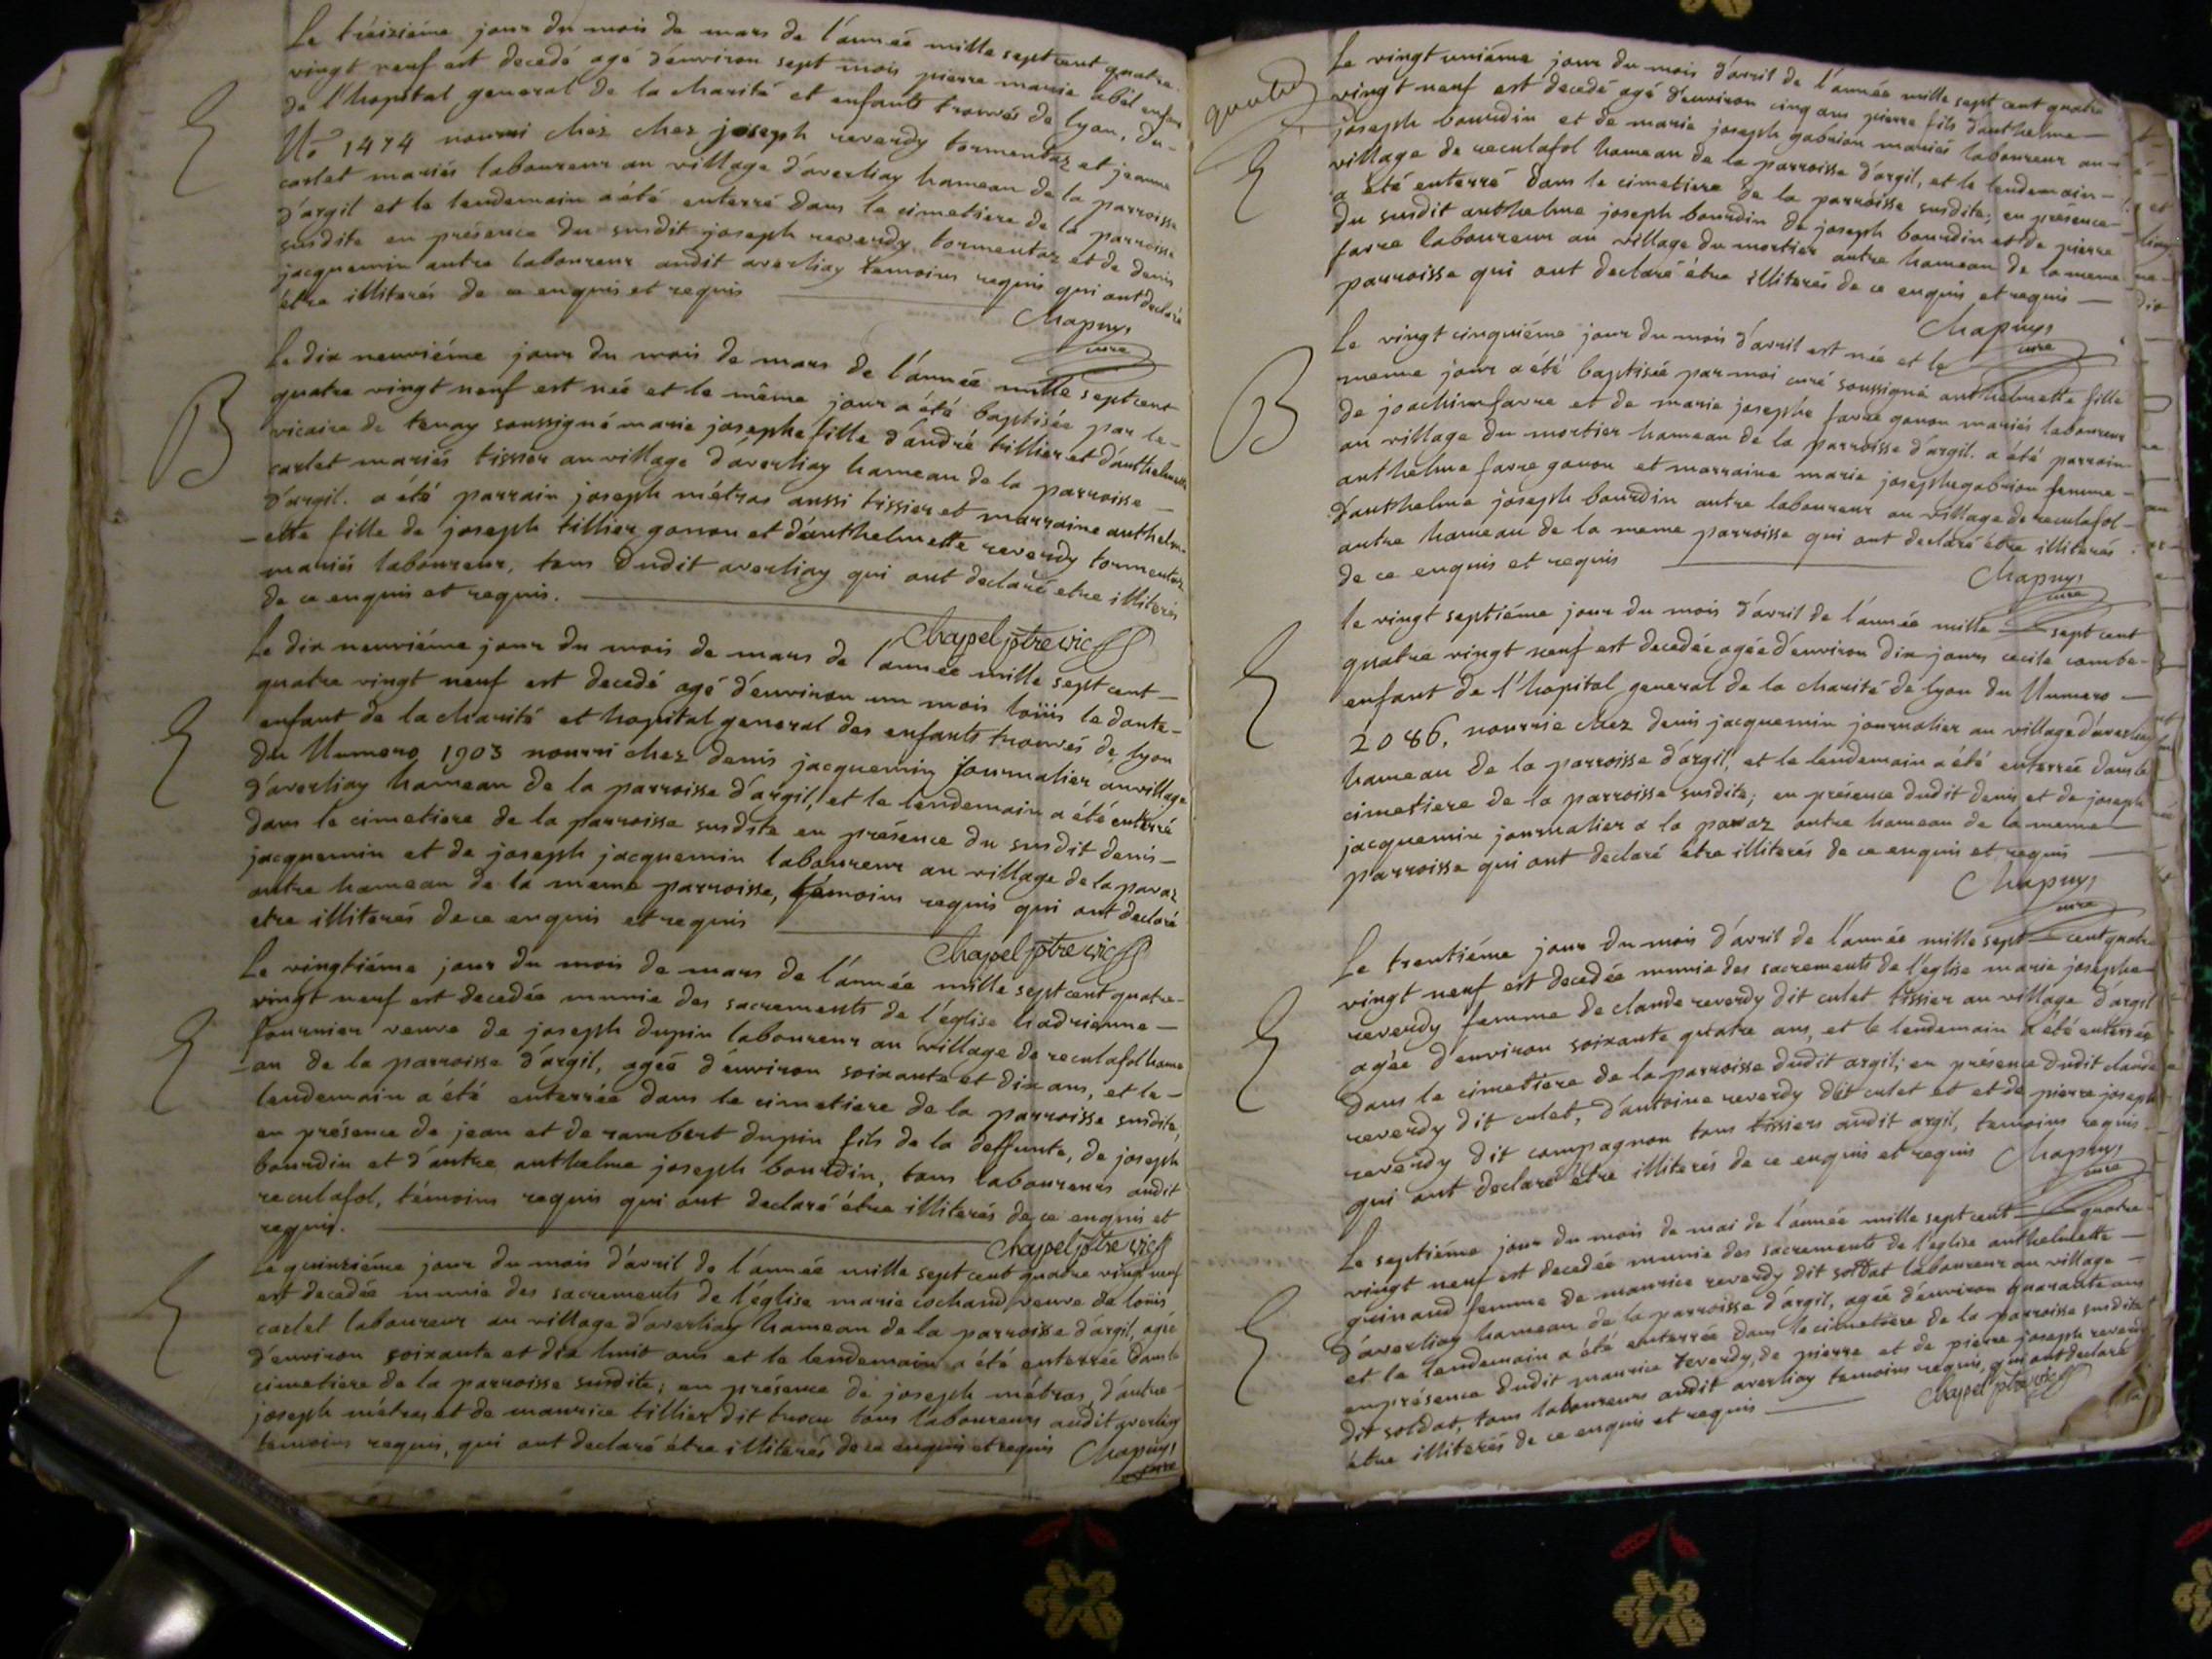 Le treiziéme jour du mois de mars de l'année mille sept cent quatre
vingt neuf est decedé agé d'environ sept mois pierre marie abel enfant
de l'hopital general de la charité et enfants trouvés de lyon, du-
No 1474 nourri chez chez joseph reverdy tormentaz et jeanne
carlet mariés laboureur au village d'averliay hameau de la parroisse
d'argil et le lendemain a été enterré dans le cimetiere de la parroisse
susdite en présence du susdit joseph reverdy tormentaz et de denis
jacquemin autre laboureur audit averliay temoins requis qui ont declaré
être illiterés de ce enquis et requis
Chapuys
curé
B
Le dix neuviéme jour du mois de mars de l'année mille sept cent
quatre vingt neuf est née et le même jour a été baptisée par le-
vicaire de tenay soussigné marie josephe fille d'andré tillier et d'anthelmette
carlet mariés tissier au village d'averliay hameau de la parroisse
d'argil. a été parrain joseph métras aussi tissier et marraine anthelm-
-ette fille de joseph tillier gonon et d'anthelmette reverdy tormentaz
mariés laboureur, tous dudit averliay qui ont declaré etre illiterés
de ce enquis et requis.
Chapel ptre vic
Le dix neuviéme jour du mois de mars de l'année mille sept cent-
quatre vingt neuf est decedé agé d'environ un mois loüis le dante-
enfant de la charité et hopital general des enfants trouvés de lyon
du Numero 1903 nourri chez denis jacquemin journalier au village
d'averliay hameau de la parroisse d'argil, et le lendemain a été enterré
dans le cimetiere de la parroisse susdite en présence du susdit denis-
jacquemin et de joseph jacquemin laboureur au village de la paraz
autre hameau de la meme parroisse, témoins requis qui ont declaré
etre illiterés de ce enquis et requis
Chapel ptre vic
Le vingtiéme jour du mois de mars de l'année mille sept cent quatre-
vingt neuf est decedée munie des sacrements de l'église hadrienne-
fournier veuve de joseph dupin laboureur au village de reculafol hame
-au de la parroisse d'argil, agée d'environ soixante et dix ans, et le-
lendemain a été enterrée dans le cimetiere de la parroisse susdite,
en présence de jean et de rambert dupin fils de la deffunte, de joseph
bourdin et d'autre anthelme joseph bourdin, tous laboureurs audit
reculafol, témoins requis qui ont declaré étre illiterés de ce enquis et
requis.
Chapel ptre vic
Le quinziéme jour du mois d'avril de l'année mille sept cent quatre vingt neuf
est decedée munie des sacrements de l'église marie cochand veuve de loüis
carlet laboureur au village d'averliay hameau de la parroisse d'argil, agée
d'environ soixante et dix huit ans et le lendemain a été enterrée dans le
cimetiere de la parroisse susdite; en présence de joseph métras, d'autre-
joseph métras et de maurice tillier dit tuscu tous laboureurs audit averliay
temoins requis, qui ont declaré étre illiterés de ce enquis et requis Chapuys
Le vingt uniéme jour du mois d'avril de l'année mille sept cent quatre
vingt neuf est decedé agé d'environ cinq ans pierre fils d'anthelme-
joseph bourdin et de marie joseph gabrion mariés laboureur au-
village de reculafol hameau de la parroisse d'argil, et le lendemain-
a été enterré dans le cimetiere de la parroisse susdite; en présence-
du susdit anthelme joseph bourdin de joseph bourdin et de pierre
favre laboureur au village du mortier autre hameau de la meme
parroisse qui ont declaré être illiterés de ce enquis et requis-
Chapuys
curé
B
Le vingt cinquiéme jour du mois d'avril est née et le
meme jour a été baptisée par moi curé soussigné anthelmette fille
de joachim favre et de marie josephe favre gonon mariés laboureur
au village du mortier hameau de la parroisse d'argil. a été parrain
anthelme favre gonon et marraine marie josephe gabrion femme-
d'anthelme joseph bourdin autre laboureur au village de reculafol-
autre hameau de la meme parroisse qui ont declaré être illiterés
de ce enquis et requis
Chapuys
curé
le vingt septiéme jour du mois d'avril de l'année mille sept cent
quatre vingt neuf est decedée agée d'environ dix jours cecile combe-
enfant de l'hopital general de la charité de lyon du Numero-
2086, nourrie chez denis jacquemin journalier au village d'averliay
hameau de la parroisse d'argil, et le lendemain a été enterrée dans le
cimetiere de la parroisse susdite; en présence dudit denis et de joseph
jacquemin journalier a la paraz autre hameau de la meme-
parroisse qui ont declaré etre illiterés de ce enquis et requis-
Chapuys
curé
Le trentiéme jour du mois d'avril de l'année mille sept cent quatre
vingt neuf est decedée munie des sacrements de l'église marie josephe
reverdy femme de claude reverdy dit culet tissier au village d'argil
agée d'environ soixante quatre ans, et le lendemain a été enterrée
dans le cimetiere de la parroisse dudit argil; en présence dudit claude
reverdy dit culet, d'antoine reverdy dit culet et et de pierre joseph
reverdy dit compagnon tous tissiers audit argil, temoins requis
qui ont declaré être illiterés de ce enquis et requis Chapuys
curé
Le septiéme jour du mois de mai de l'année mille sept cent quatre-
vingt neuf est decedée munie des sacrements de l'eglise anthelmette-
guinand femme de maurice reverdy dit soldat laboureur au village-
d'averliay hameau de la parroisse d'argil, agée d'environ quarante ans
et le lendemain a été enterrée dans le cimetiere de la parroisse susdite
en présence dudit maurice reverdy, de pierre et de pierre joseph reverdy
dit soldat, tous laboureurs audit averliay temoins requis, qui ont declaré
étre illiterés de ce enquis et requis Chapel ptre vic